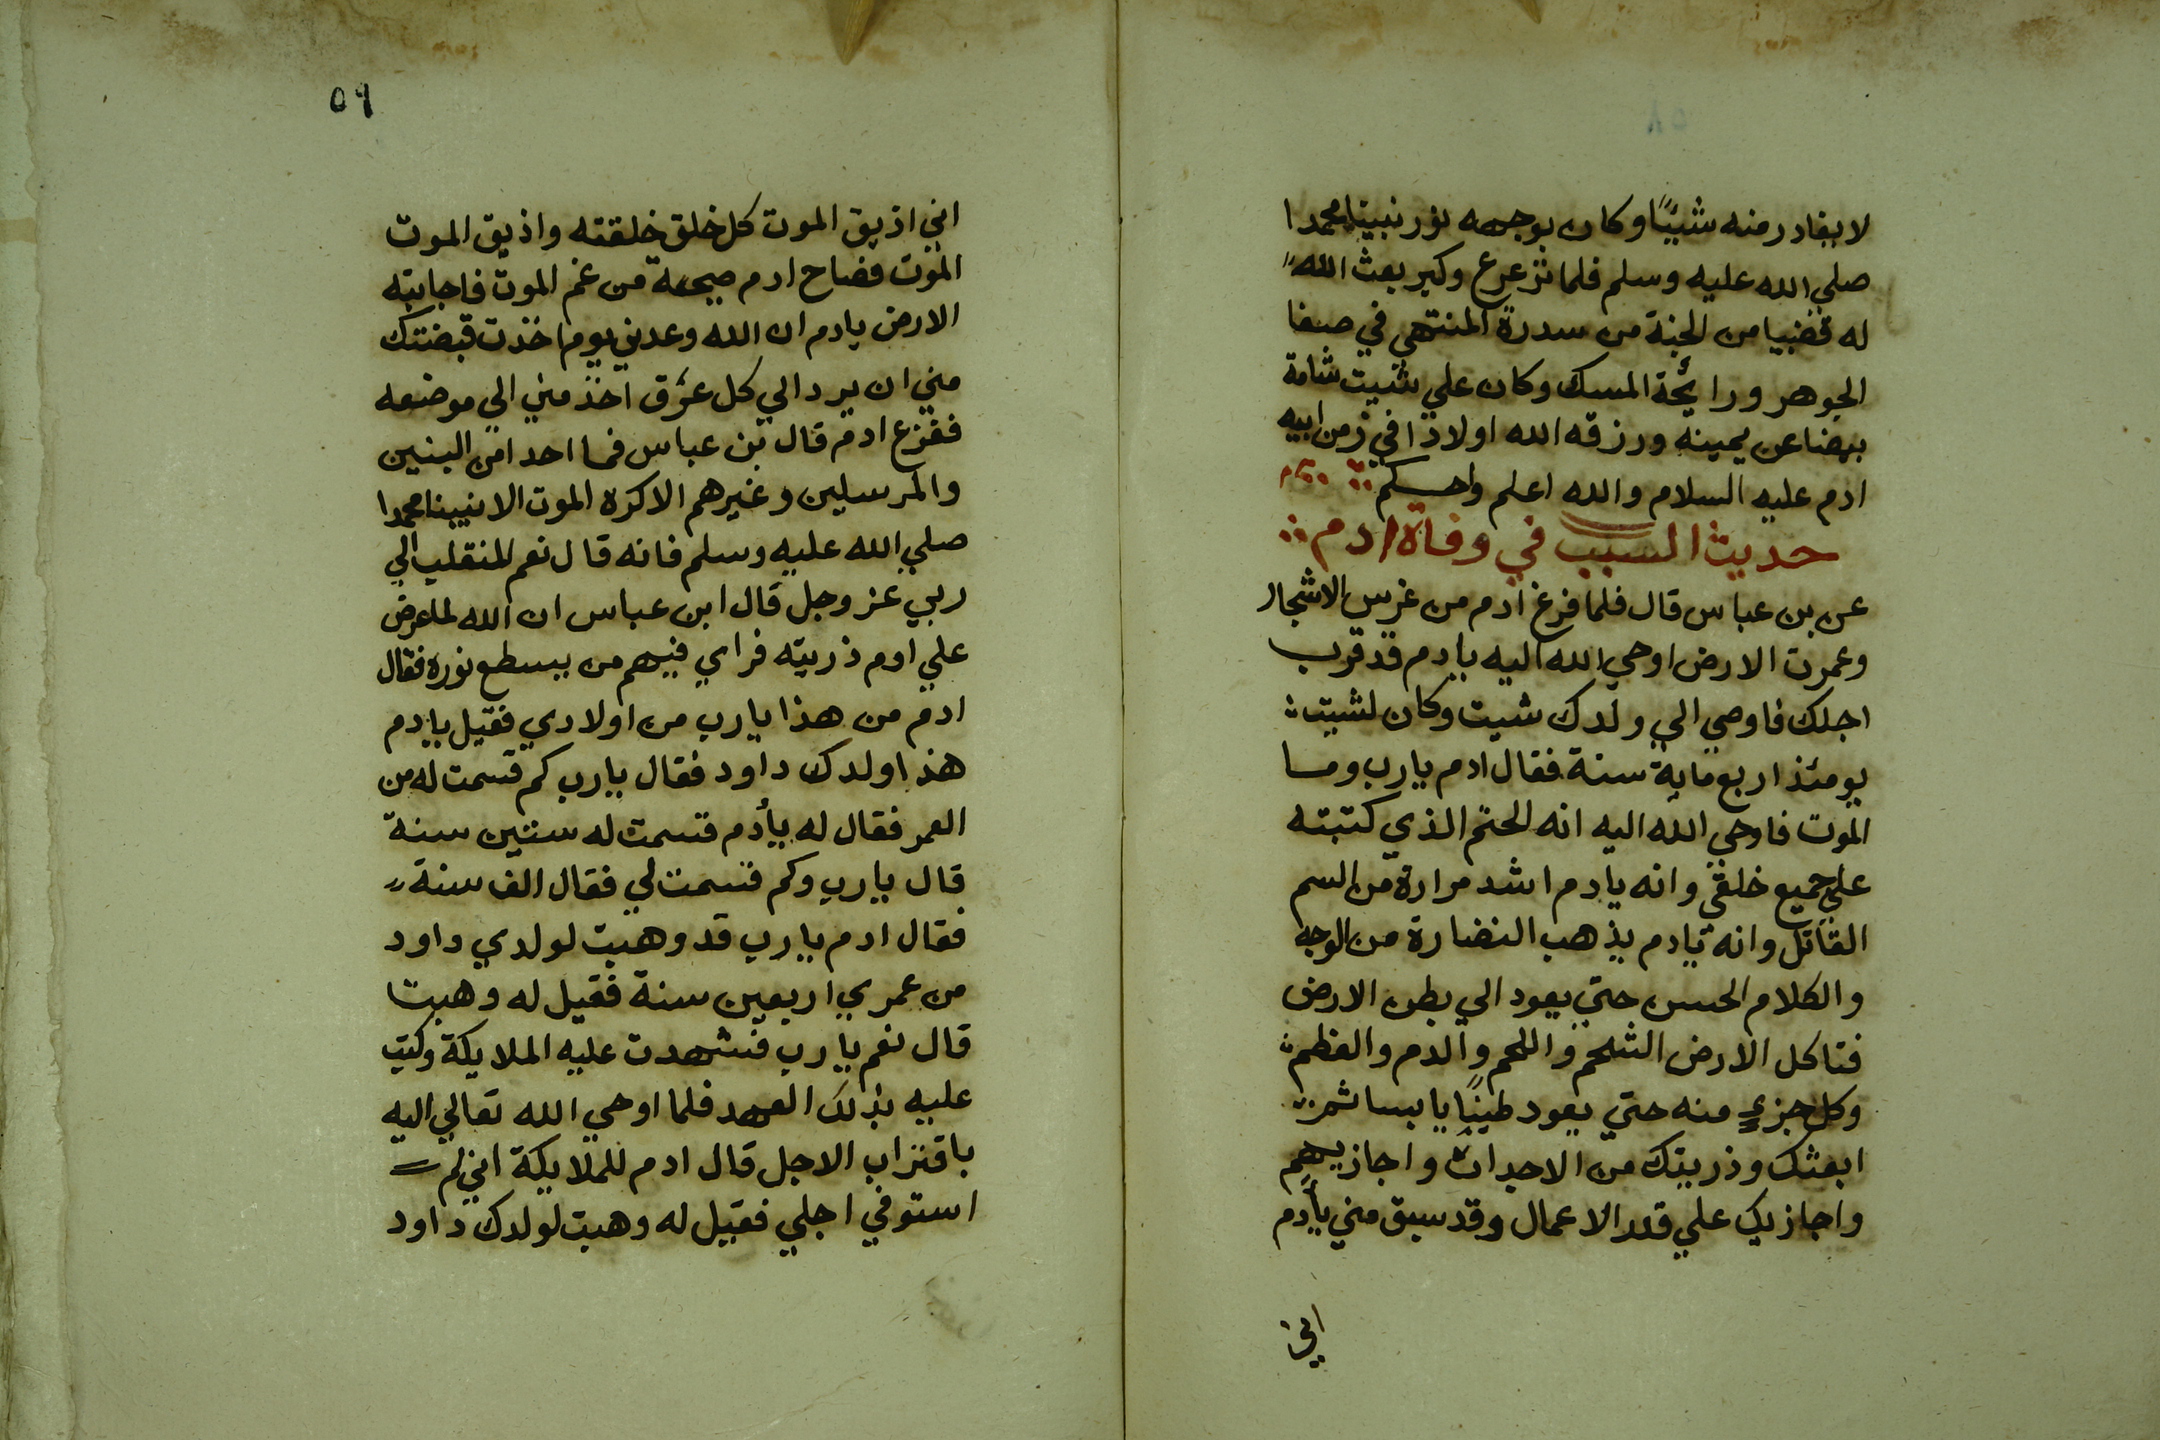 لا يغادر منه شيئًا وكان بوجهه نور نبينا محمدا
صلي الله عليه وسلم فلما تزعرع وكبر بعث الله
له قضيبا من الجنة من سدرة المنتهي في صفا
الجوهر ورايحة المسك وكان علي شيت شامة
بيضا عن يمينه ورزقه الله اولادا في زمن ابيه
ادم عليه السلام والله اعلم واحكم
حديث السبب في وفاة ادم
عن بن عباس قال فلما فرغ ادم من غرس الاشجار
وعمرت الارض اوحي الله اليه يادم قد قرب
اجلك فاوصي الي ولدك شيت وكان لشيت
يومئذ اربع ماية سنة فقال ادم يارب وما
الموت فاوحي الله اليه انه الحتم الذي كتبته
علي جميع خلقي وانه يادم اشد مرارة من السم
القاتل وانه يادم يذهب النضارة من الوجه
والكلام الحسن حتي يعود الي بطن الارض
فتاكل الارض الشحم واللحم والدم والعظم
وكل جزء منه حتي يعود طينًا يابسا ثم
ابعثك وذريتك من الاجداث واجازيهم
واجازيك علي قدر الاعمال وقد سبق مني يادم
اني
٥٩
اني اذيق الموت كل خلق خلقته واذيق الموت
الموت فصاح ادم صيحة من غم الموت فاجابته
الارض يادم ان الله وعدني يوم اخذت قبضتك
مني ان يرد الي كل عرق اخذ مني الي موضعه
ففزع ادم قال بن عباس فما احد امن النبيين
والمرسلين وغيرهم الا كره الموت الا نبينا محمدا
صلي الله عليه وسلم فانه قال نعم المنقلب الي
ربي عز وجل قال ابن عباس ان الله لما عرض
علي ادم ذريته فراي فيهم من يسطع نوره فقال
ادم من هذا يارب من اولادي فقيل يادم
هذا ولدك داود فقال يارب كم قسمت له من
العمر فقال له يأدم قسمت له ستين سنة
قال يارب وكم قسمت لي فقال الف سنة
فقال ادم يارب قد وهبت لولدي داود
من عمري اربعين سنة فقيل له وهبت
قال نعم يارب فشهدت عليه الملايكة وكتب
عليه بذلك العهد فلما اوحي الله تعالي اليه
باقتراب الاجل قال ادم للملايكة اني لم
استوفي اجلي فقيل له وهبت لولدك داود